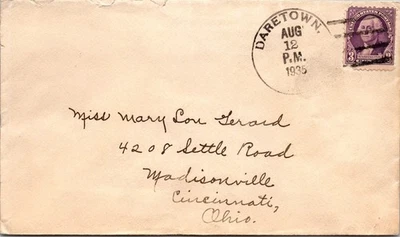 DARETOWN.
AUG
12
P.M.
1935
3
Miss Mary Lou Gerard
4208 Settle Road
Madisonville
Cincinnati,
Ohio.